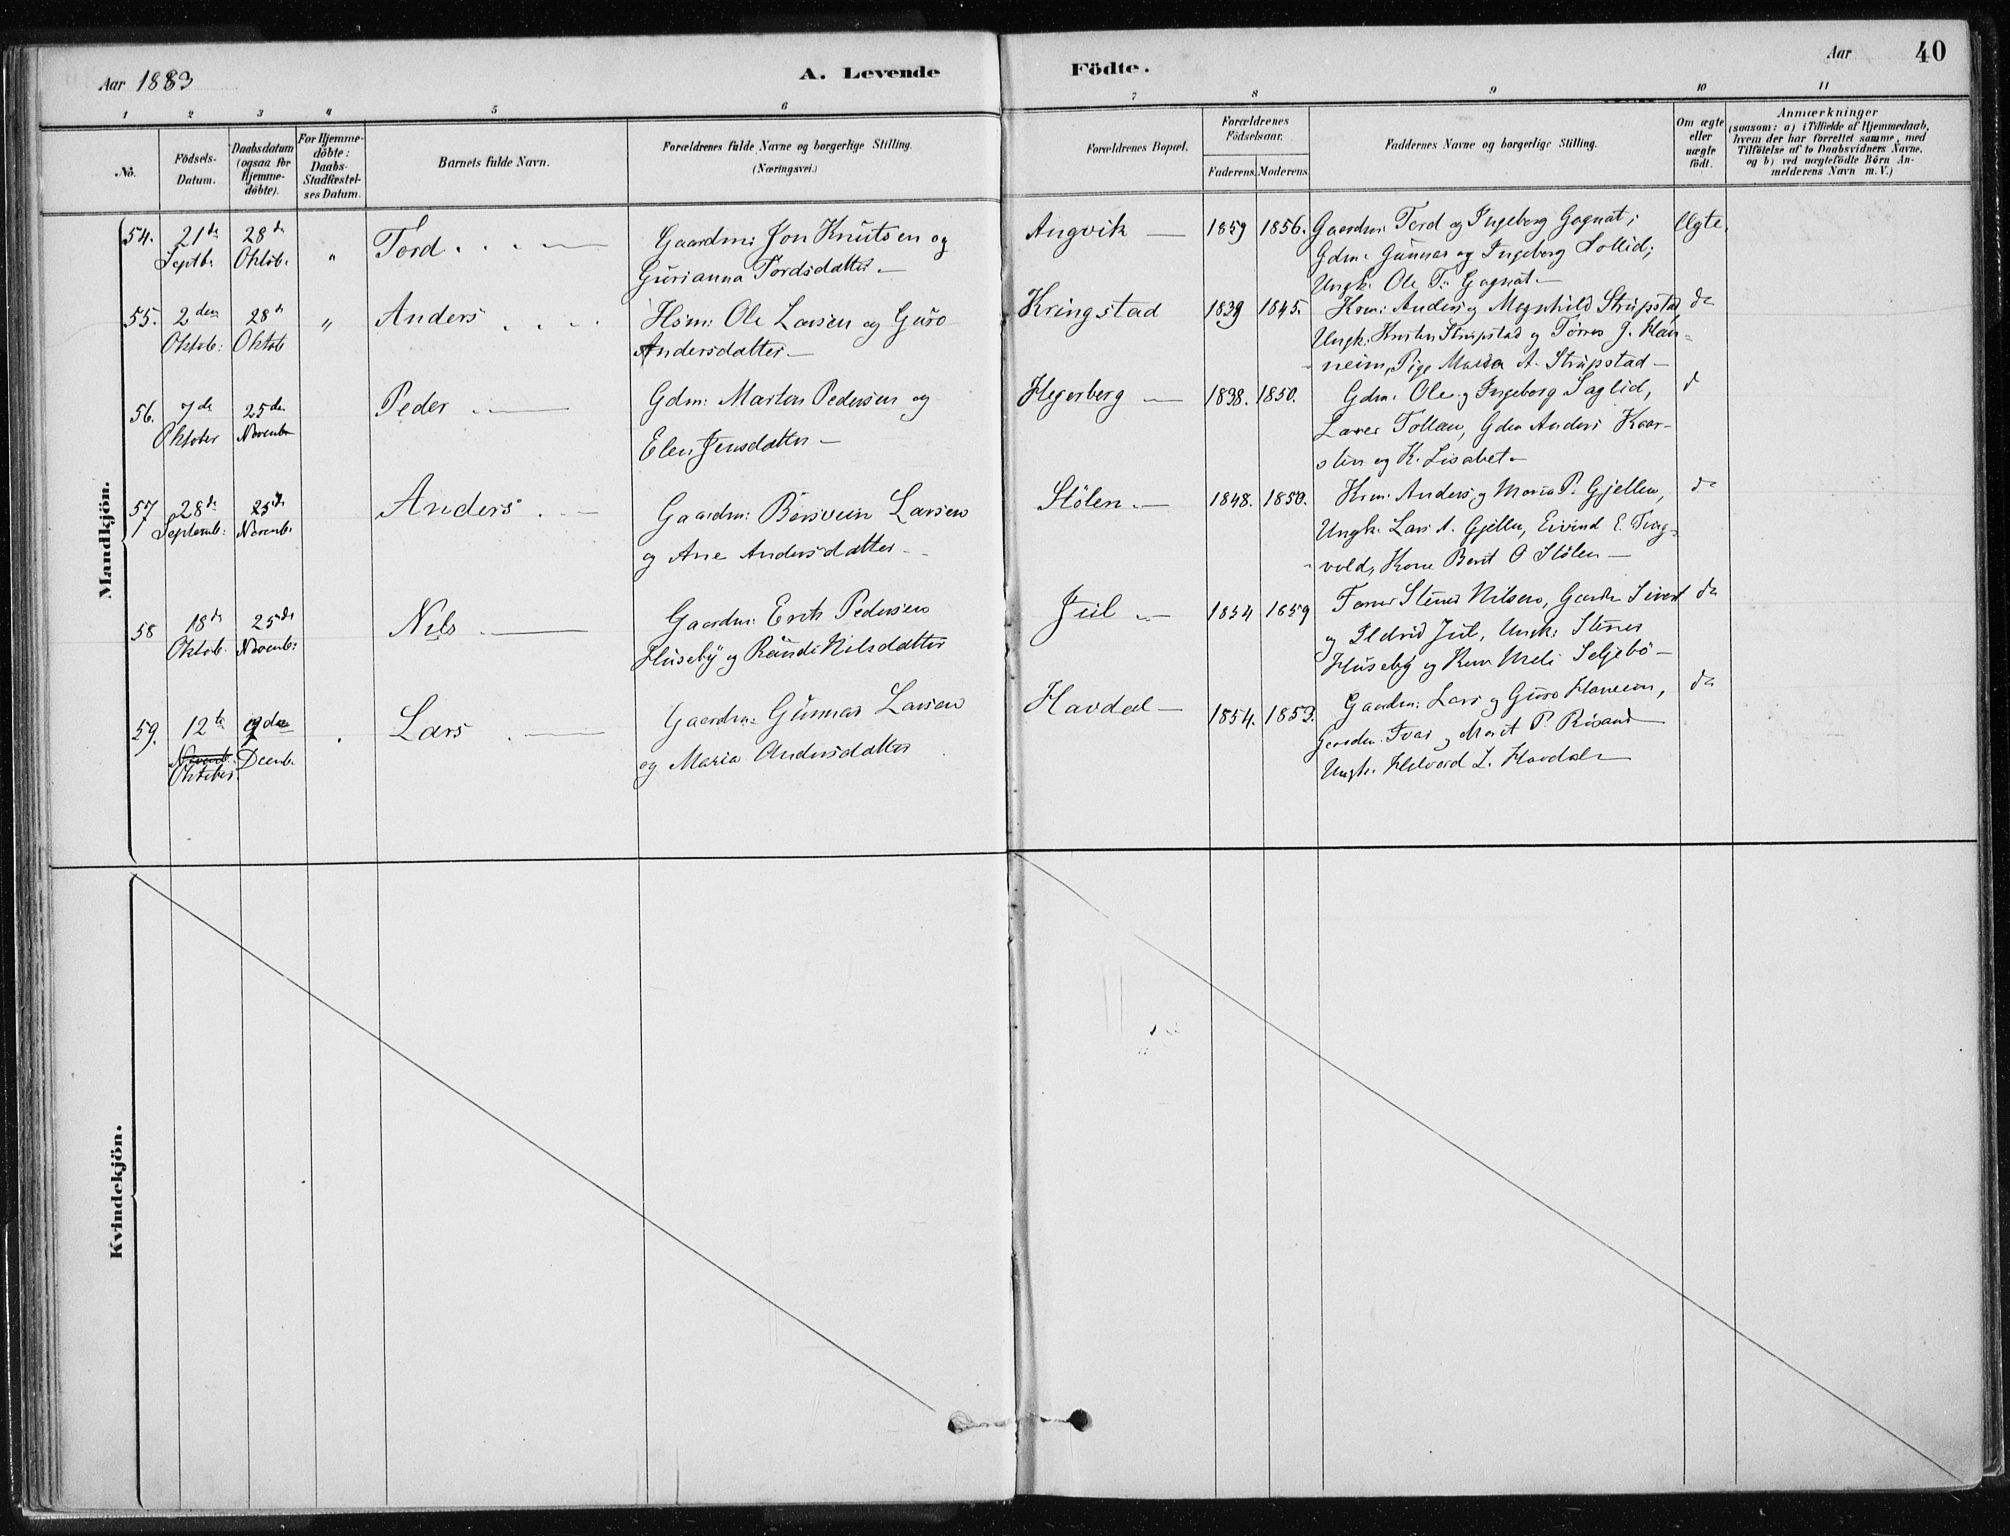 Aar 1883
A. Levende
Födte.
Aar
40
1 2 3 4 5 6 7 8 9 10 11
No.
Födsels-
Datum.
Daabsdatum
(ogsaa for
Hjemme-
döbte).
For Hjemme-
döbte:
Daabs-
Stadfæstel-
ses Datum.
Barnets fulde Navn.
Forældrenes fulde Navne og borgerlige Stilling.
(Næringsvei.)
Forældrenes Bopæl.
Forældrenes
Födselsaar.
Faderens.
Moderens.
Faddernes Navne og borgerlige Stilling.
Om ægte
eller
uægte
født.
Anmærkninger
(saasom: a) i Tilfælde af Hjemmedaab,
hvem der har forrettet samme, med
Tilföielse af to Daabsvidners Navne,
og b) ved uægtefödte Börn An-
melderens Navn m. V.)
Mandkjön.
54. 21de Septbr. 28de Oktob. " Tord
Gaardm: Jon Knutsen og
Gurianna Tordsdatter
Angvik 1859 1856.
Gaardm: Tord og Ingeborg Gagnat;
Gdm: Gunnar og Ingeborg Sollid;
Ungk: Ole T. Gagnat
Ægte.
55. 2den Oktob: 28de Oktob " Anders
Hsm: Ole Larsen og Guro
Andersdatter
Kringstad 1839 1845.
Krm: Anders og Magnhild Strupstad
Ungk: Kristen Strupstad og Torres J. Han-
neim, Pige Maria A. Strupstad
do
56. 7de Oktober 25de Novembr Peder
Gdm: Morten Pedersen og
Elen Jensdatter
Hegerberg 1838. 1850.
Gdm. Ole og Ingeborg Saglid,
Tollan, Gdm Anders Kaar-
stin og K. Lisabet
d
57 28de Septemb: 25de Novemb. Anders
Gaardm: Børsvein Larsen
og Ane Andersdatter
Stölen 1848. 1850.
Krm: Anders og Maria P. Gjellen,
Ungk: Lars A. Gjellen, Eivind E. Torg-
vold, Kone Berit O Stölen
do
58 18de Oktob. 25de Novemb: Nils
Gaardm: Erik Pedersen
Huseby og Randi Nilsdatter
Jul 1854 1859
Stener Nilsen, Gaardm Sivert
og Ildrid Jul, Ungk: Stener
Huseby og Kone Meli Seljebö
do
59. 12te Novemb. Oktober 9de Decemb. Lars
Gaardm: Gunnar Larsen
og Maria Andersdatter
Havdal 1854. 1859.
Gaardm: Lars og Guro Hansen,
Gaardm Ivar og Marit P. Rösand
Ungk. Halvard L. Havdal
do
Kvindekjön.